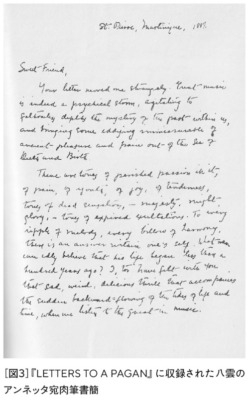 St. Pierre, Martinique, 1887.
Sweet Friend,
Your letter moved me strangely. Great music
is indeed a psychical storm, agitating to
fathomless depths the mystery of the past within us,
and bringing some eddying reminiscence of
ancient pleasure and pain out of the Sea of
Death and Birth
There are tones of perished passion in it;
of pain, of agony, of joy, of tenderness,
tones of dead emotion, – majesty, might,
glory, – tones of expired exultations. To every
ripple of melody, every billow of harmony,
there is an answer within one's self.
could believe that his life began less than a
hundred years ago? I, too have felt with you
that sad, weird, delicious thrill that accompanies
the sudden backward-flowing of the tides of life and
time, when we listen to the great in music.
[図3]『LETTERS TO A PAGAN』に収録された八雲の
アンネッタ宛肉筆書簡